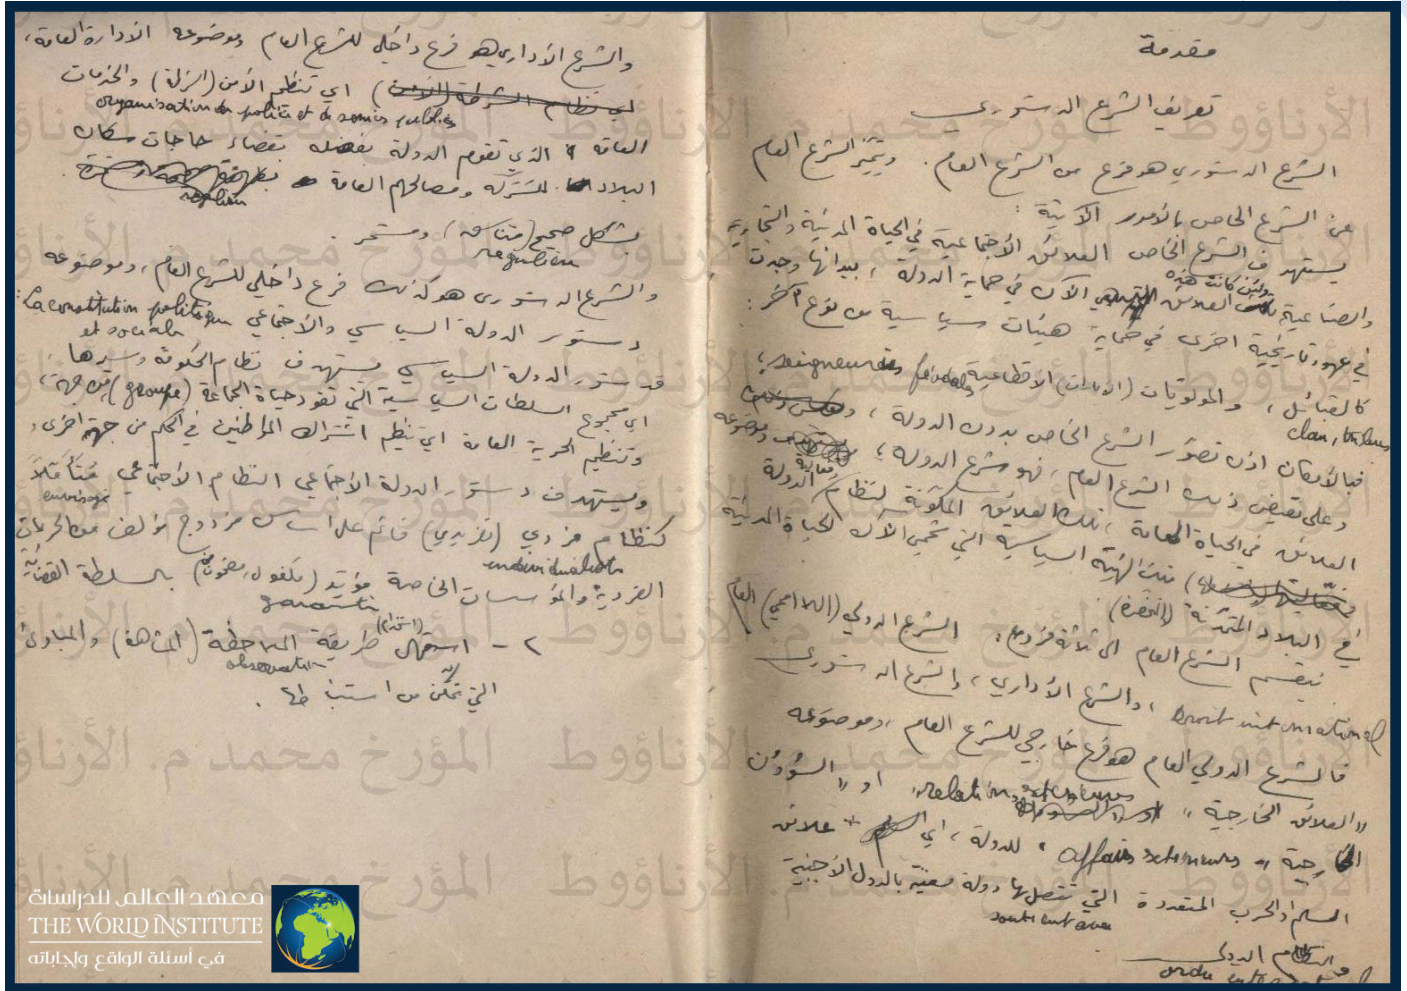 مقدمة
تعريف الشرع الدستوري
الشرع الدستوري هو فرع من الشرع العام. ويتميز الشرع العام
عن الشرع الخاص بالأمور الآتية:
يستهدف الشرع الخاص العلائق الأجتماعية في الحياة المدنية والتجارية
والصناعية العلائق هي الآن في حماية الدولة، بيد انها وجدت
ولئن كانت هذه
في عهود تاريخية اخرى في حماية هيئات سياسية من نوع آخر:
كالقبائل، والمولويات (الامارات) الاقطاعية seigneuries féodales؛
clan, tribus
فبالأمكان اذن تصوّر الشرع الخاص بدون الدولة،
وعلى نقيض ذلك الشرع العام، فهو شرع الدولة؛ وموضوعه
العلائق في الحياة العامة، تلك العلائق المكوّنة لنظام الدولة
تلك الهيئة السياسية التي تحمي الآن الحياة المدنية
في البلاد المتمدّنة (المتحضرة)
ينقسم الشرع العام الى ثلاثة فروع: الشرع الدولي (الاممي) العام
Droit international، والشرع الأداري، والشرع الدستوري
فالشرع الدولي العام هو فرع خارجي للشرع العام، وموضوعه
«العلائق الخارجية» relations extérieures، او «الشؤون
الخارجية» affaires extérieures للدولة، اي علائق
السلم او الحرب المتعددة التي تتصل بها دولة معينة بالدول الأجنبية
والنظام الدولي
والشرع الأداري هو فرع داخلي للشرع العام وموضوعه الادارة العامة،
اي تنظيم الأمن والخدمات
organisation de police et de services publics
العامة الذي تقوم الدولة بفضله بقضاء حاجات سكان
البلاد المشتركة ومصالحهم العامة
بشكل صحيح (متناسق) ومستمر.
régulier
والشرع الدستوري هو كذلك فرع داخلي للشرع العام، وموضوعه
دستور الدولة السياسي والاجتماعي La constitution politique
et sociale
فدستور الدولة السياسي يستهدف نظام الحكومة وسيرها
اي مجموع السلطات السياسية التي تقود حياة الجماعة (groupe) من جهة،
وتنظيم الحرية العامة اي تنظيم اشتراك المواطنين في الحكم من جهة اخرى.
ويستهدف دستور الدولة الأجتماعي النظام الأجتماعي
envisagé
كنظام فردي (تفريدي) قائم على اساس مزدوج مؤلف من الحريات
individualiste
الفردية والمؤسسات الخاصة مؤيّد (مكفول، مضمون) بالسلطة القضائية
garantie
٢ - استعمال طريقة الملاحظة (المشاهدة) والمبادئ
observation
التي تمكّن من استنباطها.
معهد العالم للدراسات
THE WORLD INSTITUTE
في أسئلة الواقع وإجاباته
المؤرخ محمد م. الأرناؤوط